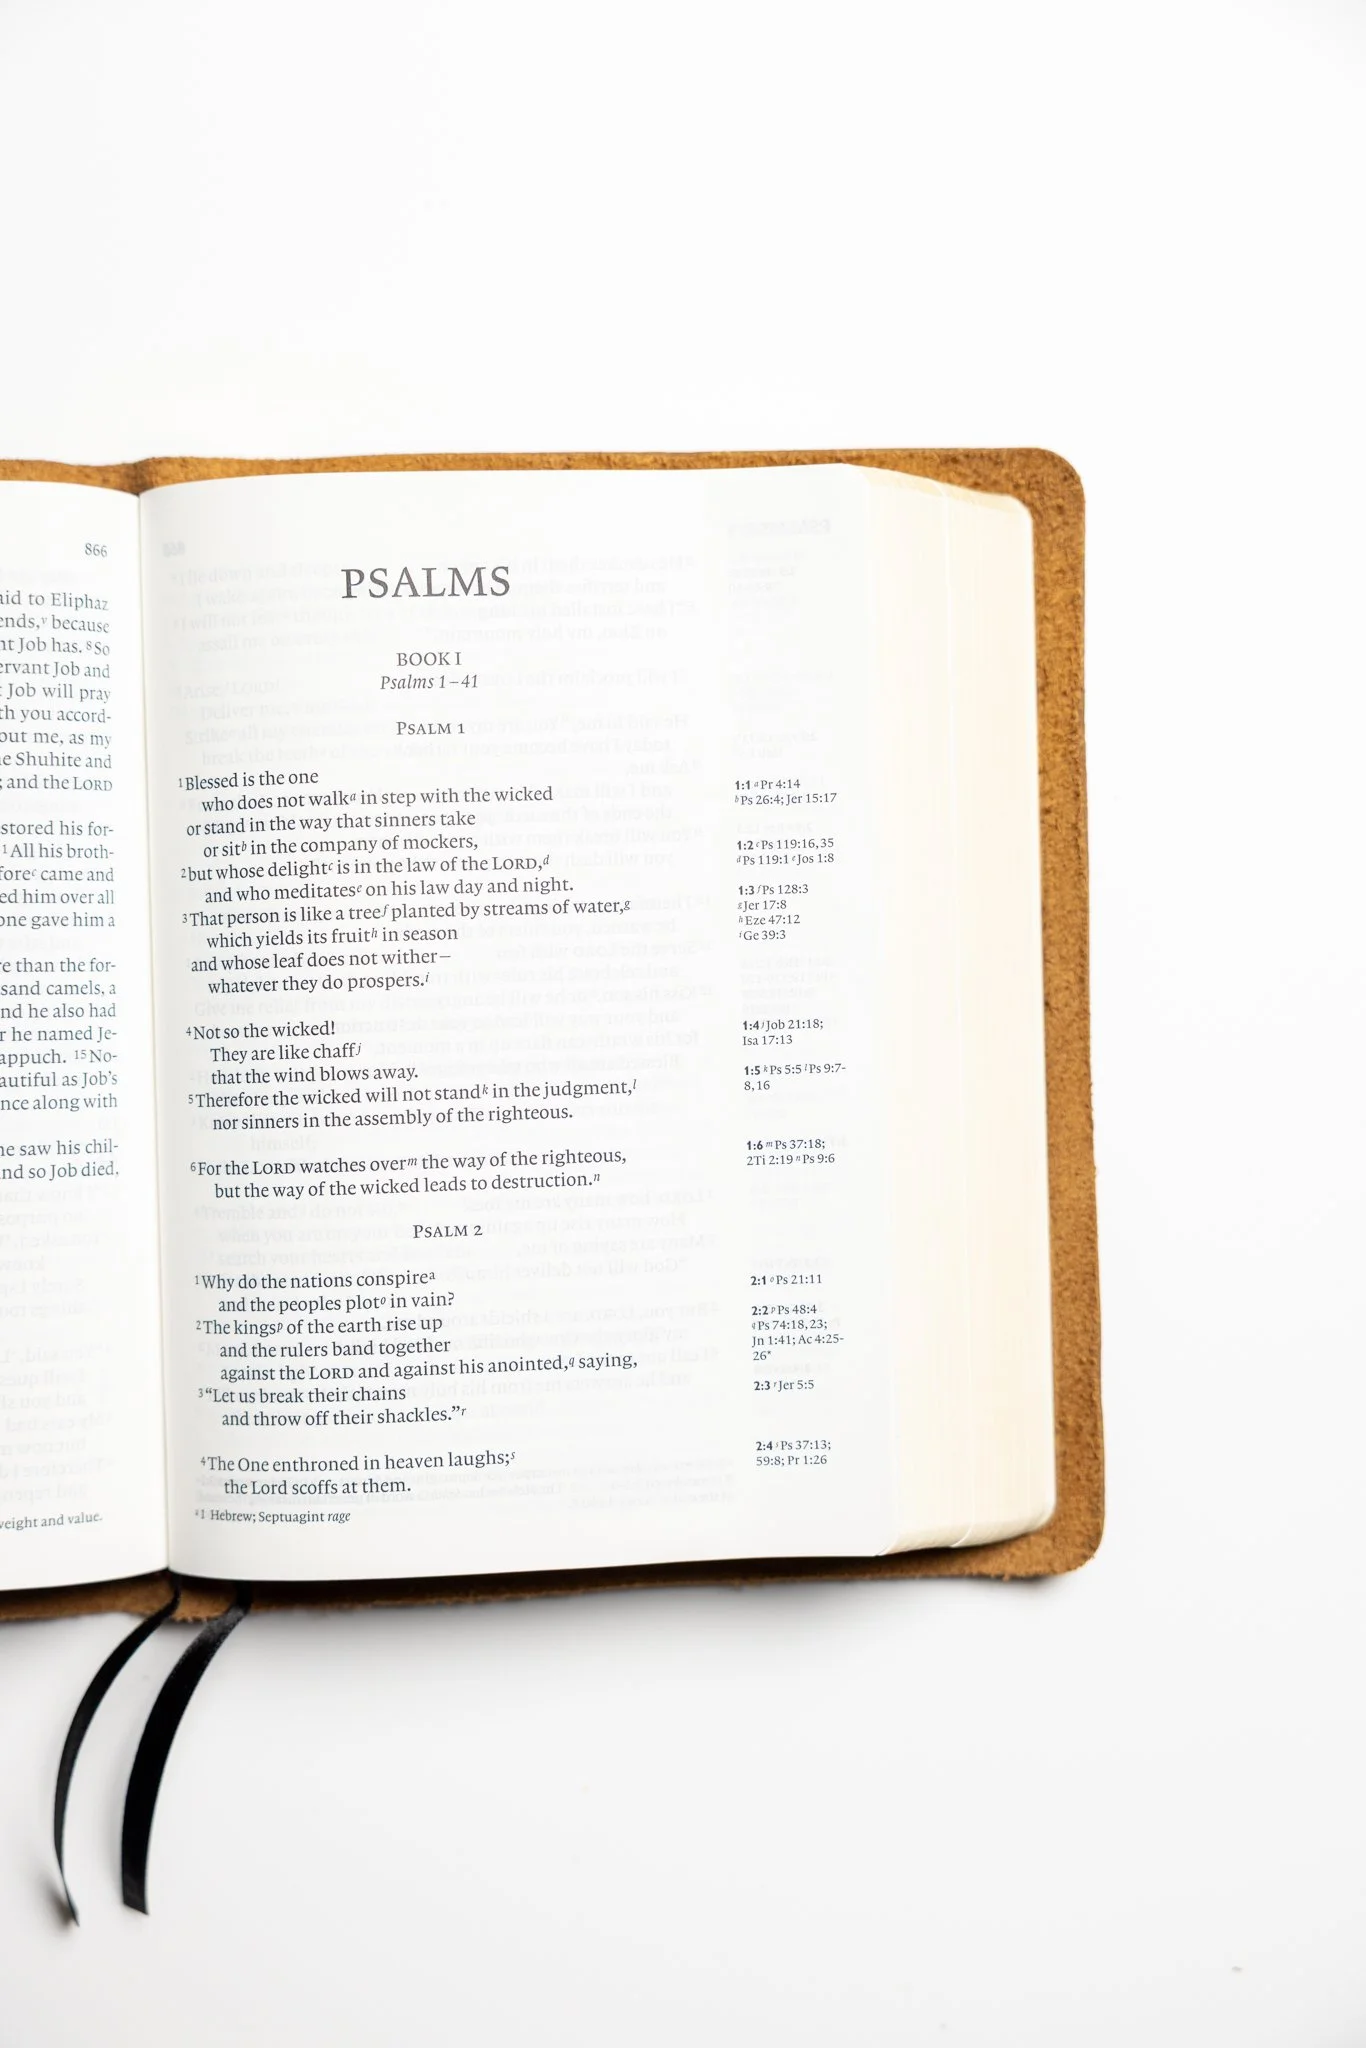 866
aid to Eliphaz
ends,ᵛ because
nt Job has. ⁸So
ervant Job and
t Job will pray
th you accord-
out me, as my
e Shuhite and
; and the LORD
stored his for-
¹All his broth-
foreᶜ came and
ed him over all
one gave him a
re than the for-
sand camels, a
nd he also had
r he named Je-
appuch. ¹⁵No-
autiful as Job’s
nce along with
he saw his chil-
nd so Job died,
weight and value.
PSALMS
BOOK I
Psalms 1–41
PSALM 1
¹Blessed is the one
who does not walkᵃ in step with the wicked
or stand in the way that sinners take
or sitᵇ in the company of mockers,
²but whose delightᶜ is in the law of the LORD,ᵈ
and who meditatesᵉ on his law day and night.
³That person is like a treeᶠ planted by streams of water,ᵍ
which yields its fruitʰ in season
and whose leaf does not wither—
whatever they do prospers.ⁱ
⁴Not so the wicked!
They are like chaffʲ
that the wind blows away.
⁵Therefore the wicked will not standᵏ in the judgment,ˡ
nor sinners in the assembly of the righteous.
⁶For the LORD watches overᵐ the way of the righteous,
but the way of the wicked leads to destruction.ⁿ
PSALM 2
¹Why do the nations conspireᵃ
and the peoples plotᵒ in vain?
²The kingsᵖ of the earth rise up
and the rulers band together
against the LORD and against his anointed,q saying,
³“Let us break their chains
and throw off their shackles.”ʳ
⁴The One enthroned in heaven laughs;ˢ
the Lord scoffs at them.
ᵃ1 Hebrew; Septuagint rage
1:1 ᵃPr 4:14
ᵇPs 26:4; Jer 15:17
1:2 ᶜPs 119:16,35
ᵈPs 119:1 ᵉJos 1:8
1:3 ᶠPs 128:3
ᵍJer 17:8
ʰEze 47:12
ⁱGe 39:3
1:4 ʲJob 21:18;
Isa 17:13
1:5 ᵏPs 5:5 ˡPs 9:7-
8,16
1:6 ᵐPs 37:18;
2Ti 2:19 ⁿPs 9:6
2:1 ᵒPs 21:11
2:2 ᵖPs 48:4
qPs 74:18,23;
Jn 1:41; Ac 4:25-
26*
2:3 ʳJer 5:5
2:4 ˢPs 37:13;
59:8; Pr 1:26